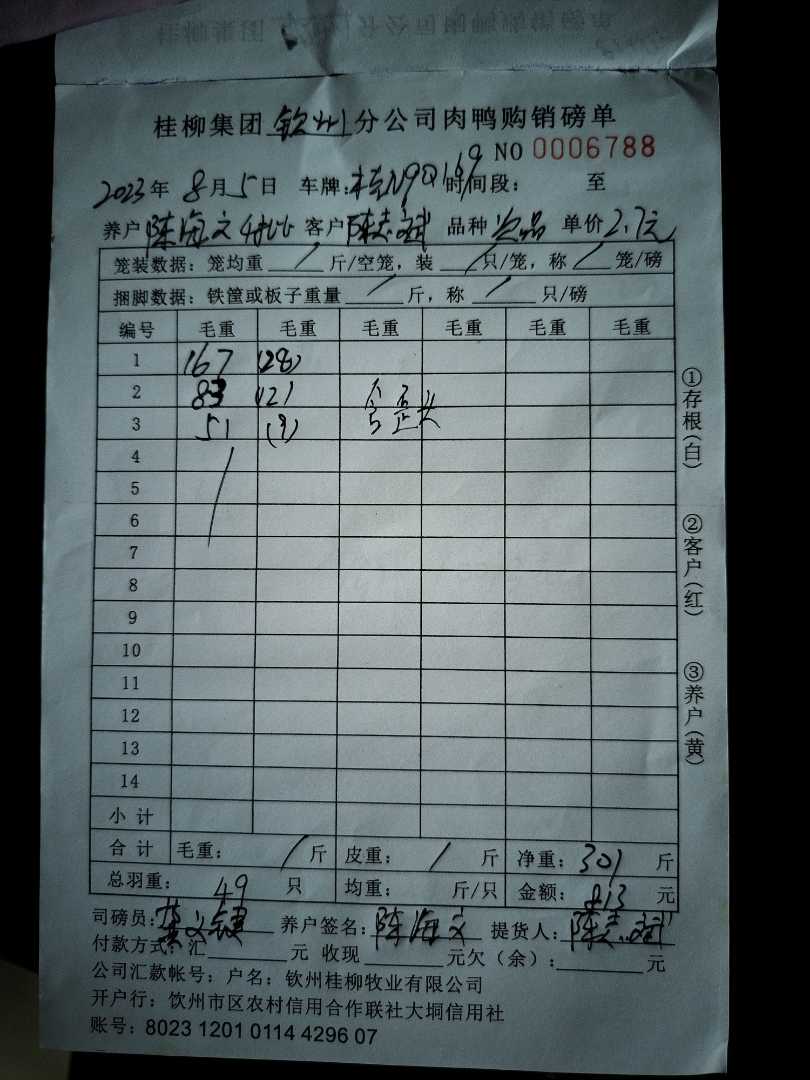 桂柳集团钦州分公司肉鸭购销磅单
NO 0006788
2023年 8月5日 车牌:桂N9Q149 时间段: 至
养户 陈海文 客户 陈志斌 品种 次品 单价 2.7元
笼装数据:笼均重 / 斤/空笼,装 / 只/笼,称 / 笼/磅
捆脚数据:铁筐或板子重量 / 斤,称 / 只/磅
编号 毛重 毛重 毛重 毛重 毛重 毛重
1 167 (28)
2 83 (12)
3 51 (9) 歪头
4
5
6
7
8
9
10
11
12
13
14
小计
合计 毛重: / 斤 皮重: / 斤 净重:301 斤
总羽重: 49 只 均重: 斤/只 金额: 813 元
司磅员: 养户签名:陈海文 提货人:陈志斌
付款方式:汇 元 收现 元欠(余): 元
公司汇款帐号:户名:钦州桂柳牧业有限公司
开户行:饮州市区农村信用合作联社大垌信用社
账号:8023 1201 0114 4296 07
①存根(白) ②客户(红) ③养户(黄)